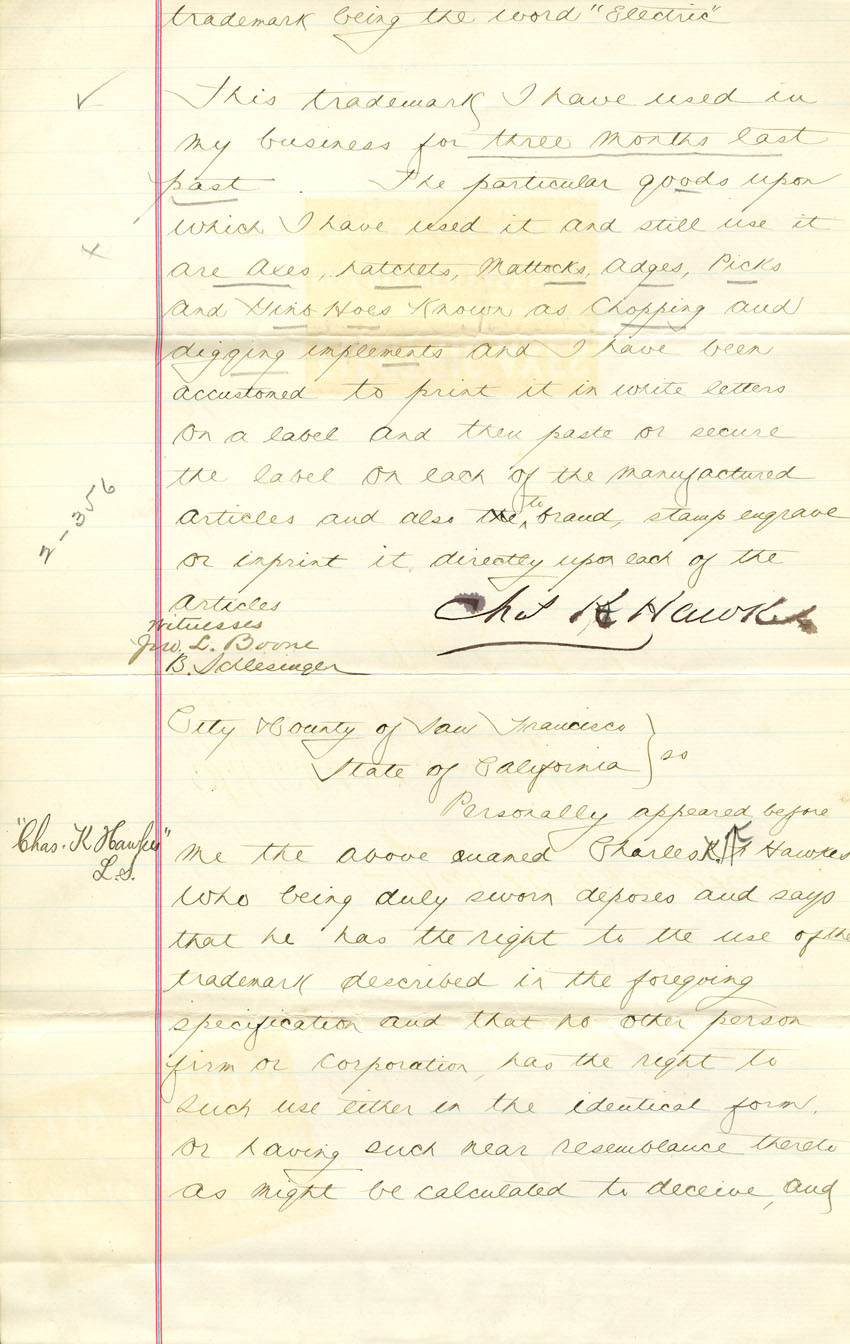 trademark being the word "Electric"
This trademark I have used in
my business for three months last
past. The particular goods upon
which I have used it and still use it
are Axes, hatchets, Mattocks, Adges, Picks
and Hoes Known as Chopping and
digging implements and I have been
accustoned to print it in white letters
on a label and then paste or secure
the label on each of the manufactured
articles and also to brand, stamp engrave
or inprint it directly upon each of the
articles
Witnesses
Jno. L. Boone
B. Schlesinger
Chas K Hawkes
2-356
City & County of San Francisco
State of California } ss
Personally appeared before
"Chas. K Hawkes"
L.S.
me the above named Charles K. Hawkes
who being duly sworn deposes and says
that he has the right to the use of the
trademark described in the foregoing
specification and that no other person
firm or Corporation, has the right to
such use either in the identical form,
or having such near resemblance thereto
as might be calculated to deceive, and